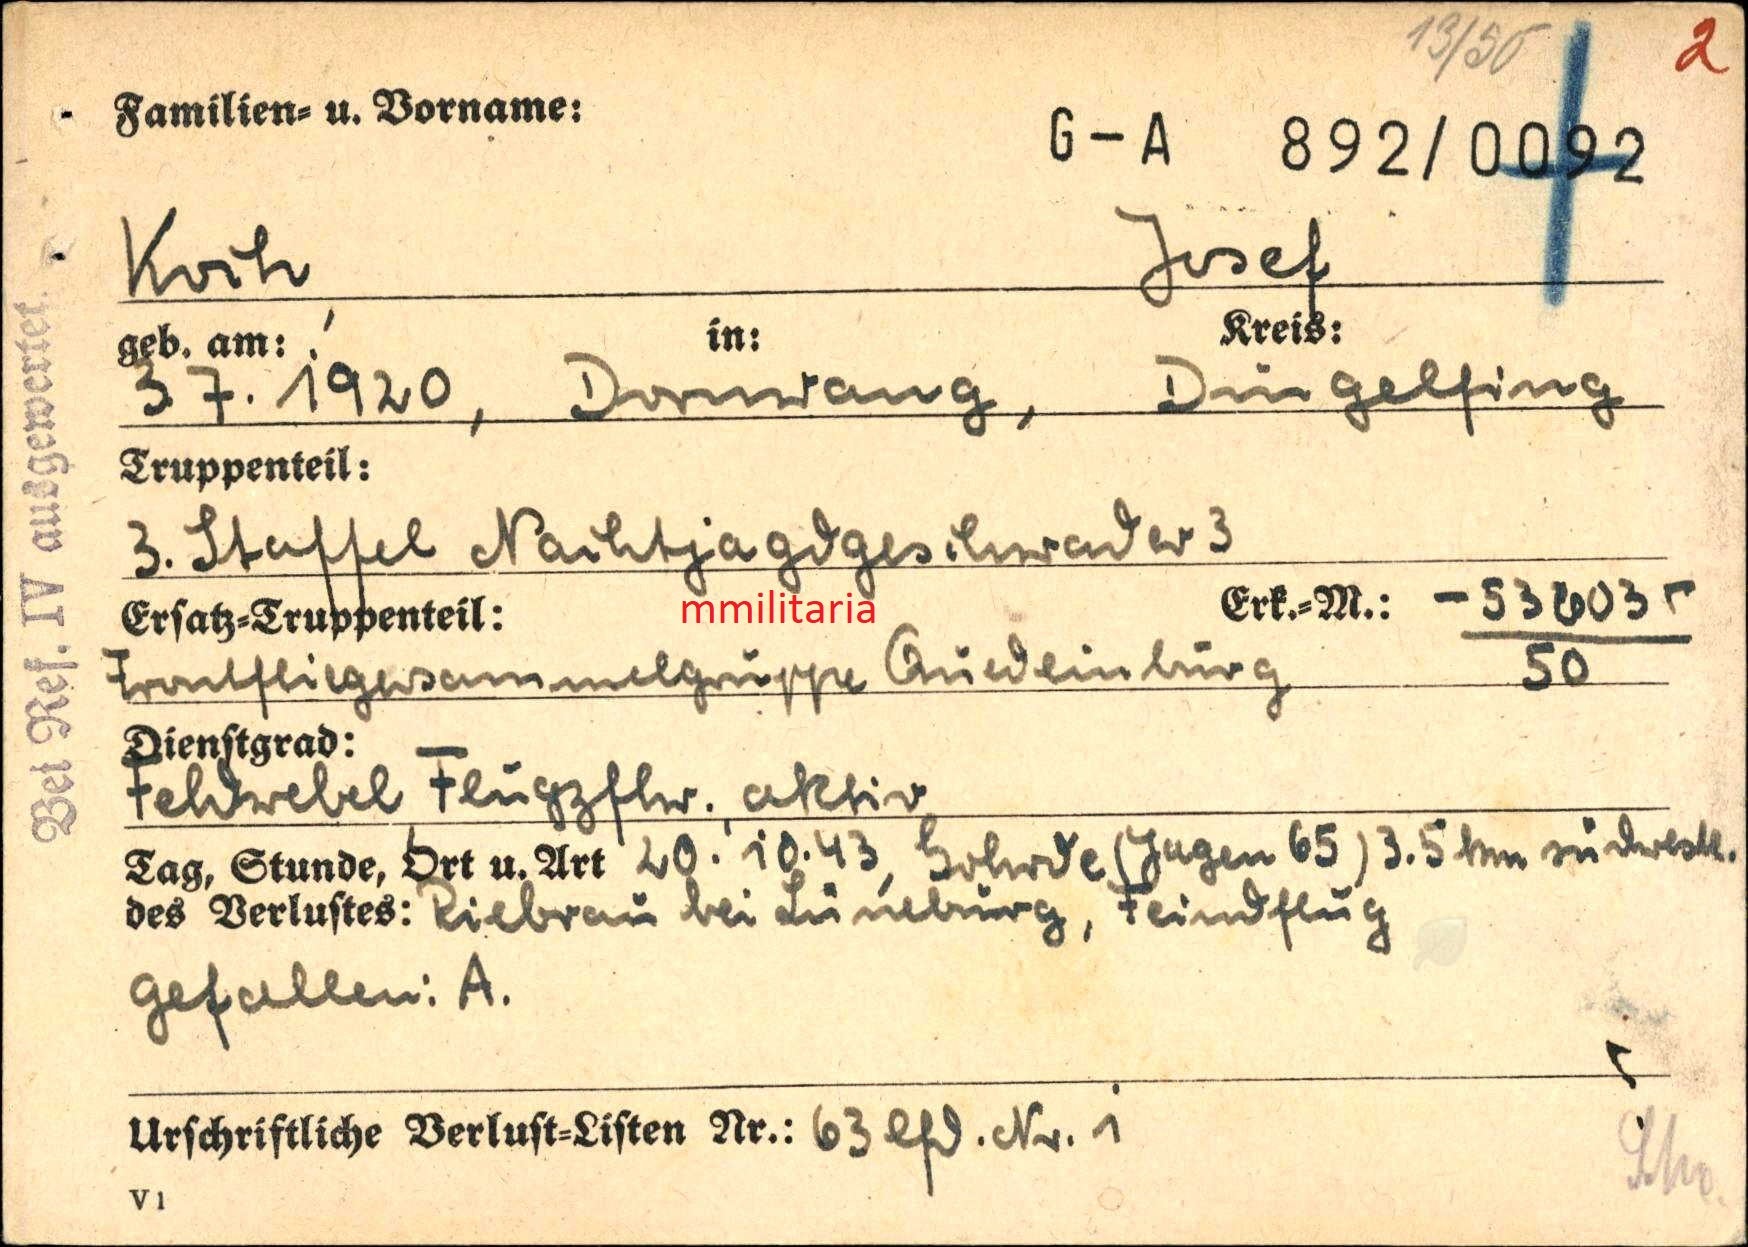 13/50 2
Familien- u. Vorname:
G-A 892/0092
Koch Josef
geb. am: in: Kreis:
3 7. 1920, Dornwang, Dingelfing
Truppenteil:
3. Staffel Nachtjagdgeschwader 3
mmilitaria
Ersatz-Truppenteil: Erk.-M.:
Frontfliegersammelgruppe Quedlinburg
50
Dienstgrad:
Feldwebel Flugzfhr. aktiv
Tag, Stunde, Ort u. Art 20. 10. 43, Gohrde (Jagen 65) 3.5 km südwestl.
des Verlustes: Riebrau bei Lüneburg, Feindflug
gefallen: A.
Urschriftliche Verlust-Listen Nr.: 63 lfd. Nr. 1
V 1
Bei Ref. IV ausgewertet.